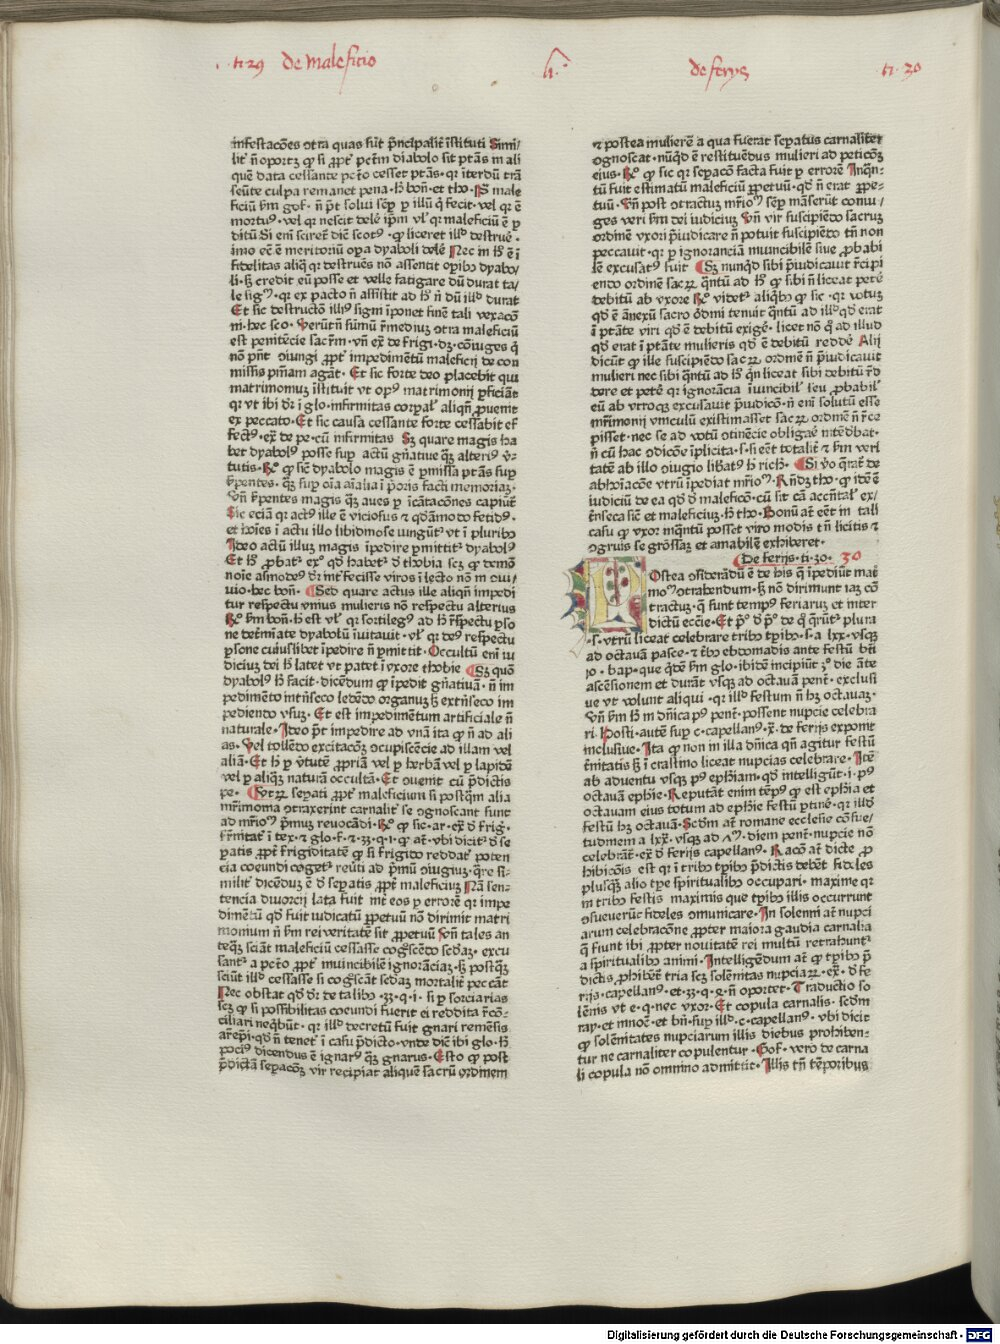 ti 29 de maleficio
li.
de ferijs
ti. 30
infestacões ɔtra quas fũt p̃ncipalit̃ ĩstituti Simi/
lit̃ ñ oportꝫ ꝙ si ꝓpt̃ pct̃m diabolo sit ptãs in ali
quẽ data cessante pct̃o cesset ptãs· qr iterdũ trã
seũte culpa remanet pena· h̃ boñ· et tho· Is male
mortuꝰ· vel qr nescit delẽ ip̃m vl̓ qr maleficiũ ẽ ꝑ
ditũ Si eni sciret̃ diẽ scotꝰ· ꝙ liceret illd̓ destruẽ·
imo eẽ ẽ meritoriũ oꝑa dyaboli delẽ Nec in h̓ ẽ ĩ
fidelitas aliq̃ qr destruẽs nõ assentit oꝑibꝰ dyabo/
li· ꝫ credit eũ posse et velle fatigare dũ durat ta/
le sigᷠ· qr ex pacto ñ assistit ad h̓ ñ dũ illd̓ durat
Et sic destructo illiꝰ signi ĩponet finẽ tali vexacõ
ni· hec sco· Verũt̃ñ sũmũ r̃mediuꝫ ɔtra maleficiũ
est penitẽcie sacr̃m· vñ ex̃ de frigi· d̓ꝫ· cõiuges q̃
nõ pñt ɔiungi ꝓpt̃ impedimẽtũ maleficij de com
missis pñiam agãt· Et sic forte deo placebit qui
matrimoniuꝫ ĩstituit vt opꝰ matrimonij ꝑficiãt
qr vt ibi dr̃ ĩ glo· infirmitas corꝑal̓ aliqñ ꝓuenit
ex peccato· Et sic causa cessante forte cessabit ef
fectꝰ· ex̃ de pe· cũ infirmitas Sꝫ quare magis ha
bet dyabolꝰ posse suꝑ actũ gñatiue q̃ꝫ alteriꝰ v̓r
tutis· Rᷠ ꝙ sic dyabolo magis ẽ ꝑmissa ptãs suꝑ
ẜpentes· q̃ꝫ suꝑ oĩa aĩalia ĩ p̃oris facti memoriaꝫ·
Vñ ẜpentes magis q̃ꝫ aues ꝑ ĩcãtacões capiũt̃
Sic eciã qr actꝰ ille ẽ viciosus ⁊ qd̓ãmodo fetidꝰ·
et hoĩes ĩ actu illo libidinose iungũt̃ vt ĩ pluribꝰ
Ideo actũ illuꝫ magis ĩpedire ꝑmittit̃ dyabolꝰ
Et h̓ ꝓbat̃ exᷠ qd̓ habet̃ d̓ thobia scꝫ ꝙ demõ
noĩe asmodeꝰ d̓r int̃fecisse viros ĩ lecto nõ in oui/
uio· hec boñ· Sed quare actus ille aliqñ impedi
tur respectu vnius mulieris nõ respectu alterius
ne det̃mĩate dyabolũ ĩuitauit· vl̓ qr deꝰ respectu
ꝑsone cuiuslibet ĩpedire ñ ꝑmittit· Occultũ eni iu
diciuꝫ dei h̓ latet vt patet ĩ vxore thobie Sꝫ quõ
dyabolꝰ h̓ facit· dicendum ꝙ ĩpedit gñatiuã· ñ im
pedimẽto int̃nseco ledẽdo organuꝫ ꝫ extñseco im
pediendo vsuꝫ· Et est impedimẽtum artificiale ñ
naturale· Ideo p̃t impedire ad vnã ita ꝙ ñ ad ali
as· Vel tollẽdo excitacõꝫ ɔcupiscẽcie ad illam vel
aliã· Et h̓ ꝑ v̓tutẽ ꝓpriã vel ꝑ herbã vel ꝑ lapidẽ
vel ꝑ aliq̃ꝫ naturã occultã· Et ɔuenit cũ p̃dictis
mr̃imonia ɔtraxerint carnalit̃ se ɔgnoscant sunt
ꝑatis ꝓpt̃ frigiditatẽ ꝙ si frigido reddat̃ poten
cia coeundi coget̃ reũti ad p̃mũ ɔiugiuꝫ· q̃re si/
milit̃ dicẽduꝫ ẽ d̓ seꝑatis ꝓpt̃ maleficiuꝫ Nã sen/
tencia diuorcij lata fuit int̃ eos ꝑ errorẽ qr impe
dimẽtũ qd̓ fuit iudicatũ ꝑpetuũ nõ dirimit matri
monium ñ ẜm rei veritatẽ sit ꝑpetuũ Vñ tales an
teq̃ꝫ sciãt maleficiũ cessasse cogᷠscẽdo sedaꝫ· excu
sant̃ a pct̃o ꝓpt̃ inuincibilẽ ignorãciaꝫ· ꝫ postq̃ꝫ
sciũt illd̓ cessasse si cogᷠscãt sedaꝫ mortalit̃ peccãt
Nec obstat qd̓ dr̃ de talibꝰ ·33· q· i· si ꝑ sorciarias
scꝫ ꝙ si possibilitas coeundi fuerit ei reddita r̃cõ/
ciliari neq̃bũt· qr illd̓ decretũ fuit gnari remẽsis
ar̃epi· qd̓ ñ tenet̃ ĩ casu p̃dicto· vnde diẽ ibi glo· h̓
pociꝰ dicendus ẽ ignarꝰ q̃ꝫ gnarus· Esto ꝙ post
p̃dictã seꝑacõꝫ vir recipiat aliquẽ sacrũ ordinem
⁊ postea mulierẽ a qua fuerat seꝑatus carnaliter
ɔgnoscat· nũqd̓ ẽ restituẽdus mulieri ad peticõꝫ
eius· Rᷠ ꝙ sic qr seꝑacõ facta fuit ꝑ errorẽ Inq̃n/
tũ fuit estimatũ maleficiũ ꝑpetuũ· qd̓ ñ erat ꝑpe/
tuũ· Vñ post ɔtractuꝫ mr̃ioᷠ semꝑ mãserũt coniu/
ges veri ẜm dei iudiciuꝫ Vñ vir suscipiẽdo sacruꝫ
ordinẽ vxori p̃iudicare ñ potuit suscipiẽdo tñ non
peccauit· qr ꝑ ignoranciã inuincibilẽ siue ꝓbabi
lẽ excusatꝰ fuit Sꝫ nunqd̓ sibi p̃iudicauit r̃cipi
endo ordinẽ sacꝝ q̃ntũ ad h̓ ꝙ sibi ñ liceat petẽ
debitũ ab vxore Rᷠ videt̃ aliqbꝰ ꝙ sic· qr votuꝫ
qd̓ ẽ ãnexũ sacro ordini tenuit q̃ntũ ad illd̓ qd̓ erat
ĩ ptãte viri qd̓ ẽ debitũ exigẽ· licet nõ q̃ ad illud
qd̓ erat ĩ ptãte mulieris qd̓ ẽ debitũ reddẽ Alij
dicũt ꝙ ille suscipiẽdo sacꝝ ordinẽ ñ p̃iudicauit
mulieri nec sibi q̃ntũ ad h̓ q̃n liceat sibi debitũ r̃d
dere et petẽ qr ignorãcia ĩuincibil̓ seu ꝓbabil̓
eũ ab vtroqꝫ excusauit p̃iudicõ· ñ eni solutũ esse
mr̃imonij vinculũ existimasset sacꝝ ordinẽ ñ r̃ce
pisset· nec se ad votũ ɔtinẽcie obligaẽ intẽdebat·
ñ cũ hac ɔdicõe ĩplicita· s· si eẽt totalit̃ ⁊ ẜm veri
tatẽ ab illo ɔiugio libatꝰ h̓ rich· Si v̓o q̃rat̃ de
abhoĩacõe vtrũ ĩpediat mr̃ioᷠ· Rñdꝫ tho· ꝙ idẽ ẽ
iudiciũ de ea qd̓ d̓ maleficõ· cũ sit cã accñtal̓ ex/
t̃nseca sic̃ et maleficiuꝫ· h̓ tho· Bonũ at̃ eẽt in tali
casu ꝙ vxor inq̃ntũ posset viro modis tñ licitis ⁊
ɔgruis se grõsaꝫ et amabilẽ exhiberet·
De ferijs· ti· 30· 30
Postea ɔsiderãdũ ẽ de his q̃ ĩpediũt mat̃
moᷠ ɔtrahendum· ꝫ nõ dirimunt iaꝫ cõ
tractuꝫ· q̃ sunt tempꝰ feriaruꝫ et inter
dictũ eccĩe· Et pᷠ d̓ p̃ᷠ de q̃ q̃rũt̃ plura
·s· vtrũ liceat celebrare tribꝰ tꝑibꝰ ·s· a lxx· vsqꝫ
ad octauã pasce· ⁊ t̃bꝰ ebdomadis ante festũ bt̃i
io· bap· que q̃dẽ ẜm glo· ibidẽ incipiũt 3ᷠ die ãte
ascẽsionem et durãt vsqꝫ ad octauã pent̃· exclusi
ue vt volunt aliqui· qr illd̓ festum ñ hꝫ octauaꝫ·
Vñ ẜm h̓ in dñica pᷠ pent̃· possent nupcie celebra
ri· Hosti· autẽ suꝑ c· capellanꝰ· ex̃· de ferijs exponit
inclusiue· Ita ꝙ non in illa dñica qñ agitur festũ
t̃nitatis ꝫ ĩ crastino liceat nupcias celebrare· Itẽ
ab aduentu vsqꝫ pᷠ ephĩam· qd̓ intelligũt· i· pᷠ
octauã ephĩe· Reputãt enim tẽpꝰ ꝙ est ephĩa et
octauam eius totum ad ephĩe festũ ꝑtinẽ· qr illd̓
festũ hꝫ octauã· Scdm at̃ romane ecclesie cõsue/
tudinem a lxx· vsqꝫ ad 7ᷠ· diem pent̃· nupcie nõ
celebrãt̃· ex̃ d̓ ferijs capellanꝰ· Racõ at̃ dicte ꝓ
hibicõis est qr ĩ tribꝰ tꝑibꝰ p̃dictis debẽt fideles
plusq̃ꝫ alio tꝑe spiritualibꝰ occupari· maxime qr
in tribꝰ festis maximis que tꝑibꝰ illis occurrunt
ɔsueuerũt fideles ɔmunicare· In solenni at̃ nupci
arum celebracõne ꝓpter maiora gaudia carnalia
q̃ fiunt ibi ꝓpter nouitatẽ rei multũ retrahunt̃
a spiritualibꝰ animi· Intelligẽdum at̃ ꝙ tꝑibꝰ p̃
dictis ꝓhibẽt̃ tria scꝫ solẽnitas nupciaꝝ· ex̃· d̓ fe
rijs· capellanꝰ· et 33· q· 4· ñ oportet· Traductio so
lẽnis vt e· q· nec vxor· Et copula carnalis· scdm
ray· et inoẽ· et bñ· suꝑ illd̓· c· capellanꝰ· vbi dicit̃
ꝙ solẽnitates nupciarum illis diebus prohiben/
tur ne carnaliter copulentur· Gof· vero de carna
li copula nõ omnino admittit· Illis tñ tẽporibus
Digitalisierung gefördert durch die Deutsche Forschungsgemeinschaft - DFG